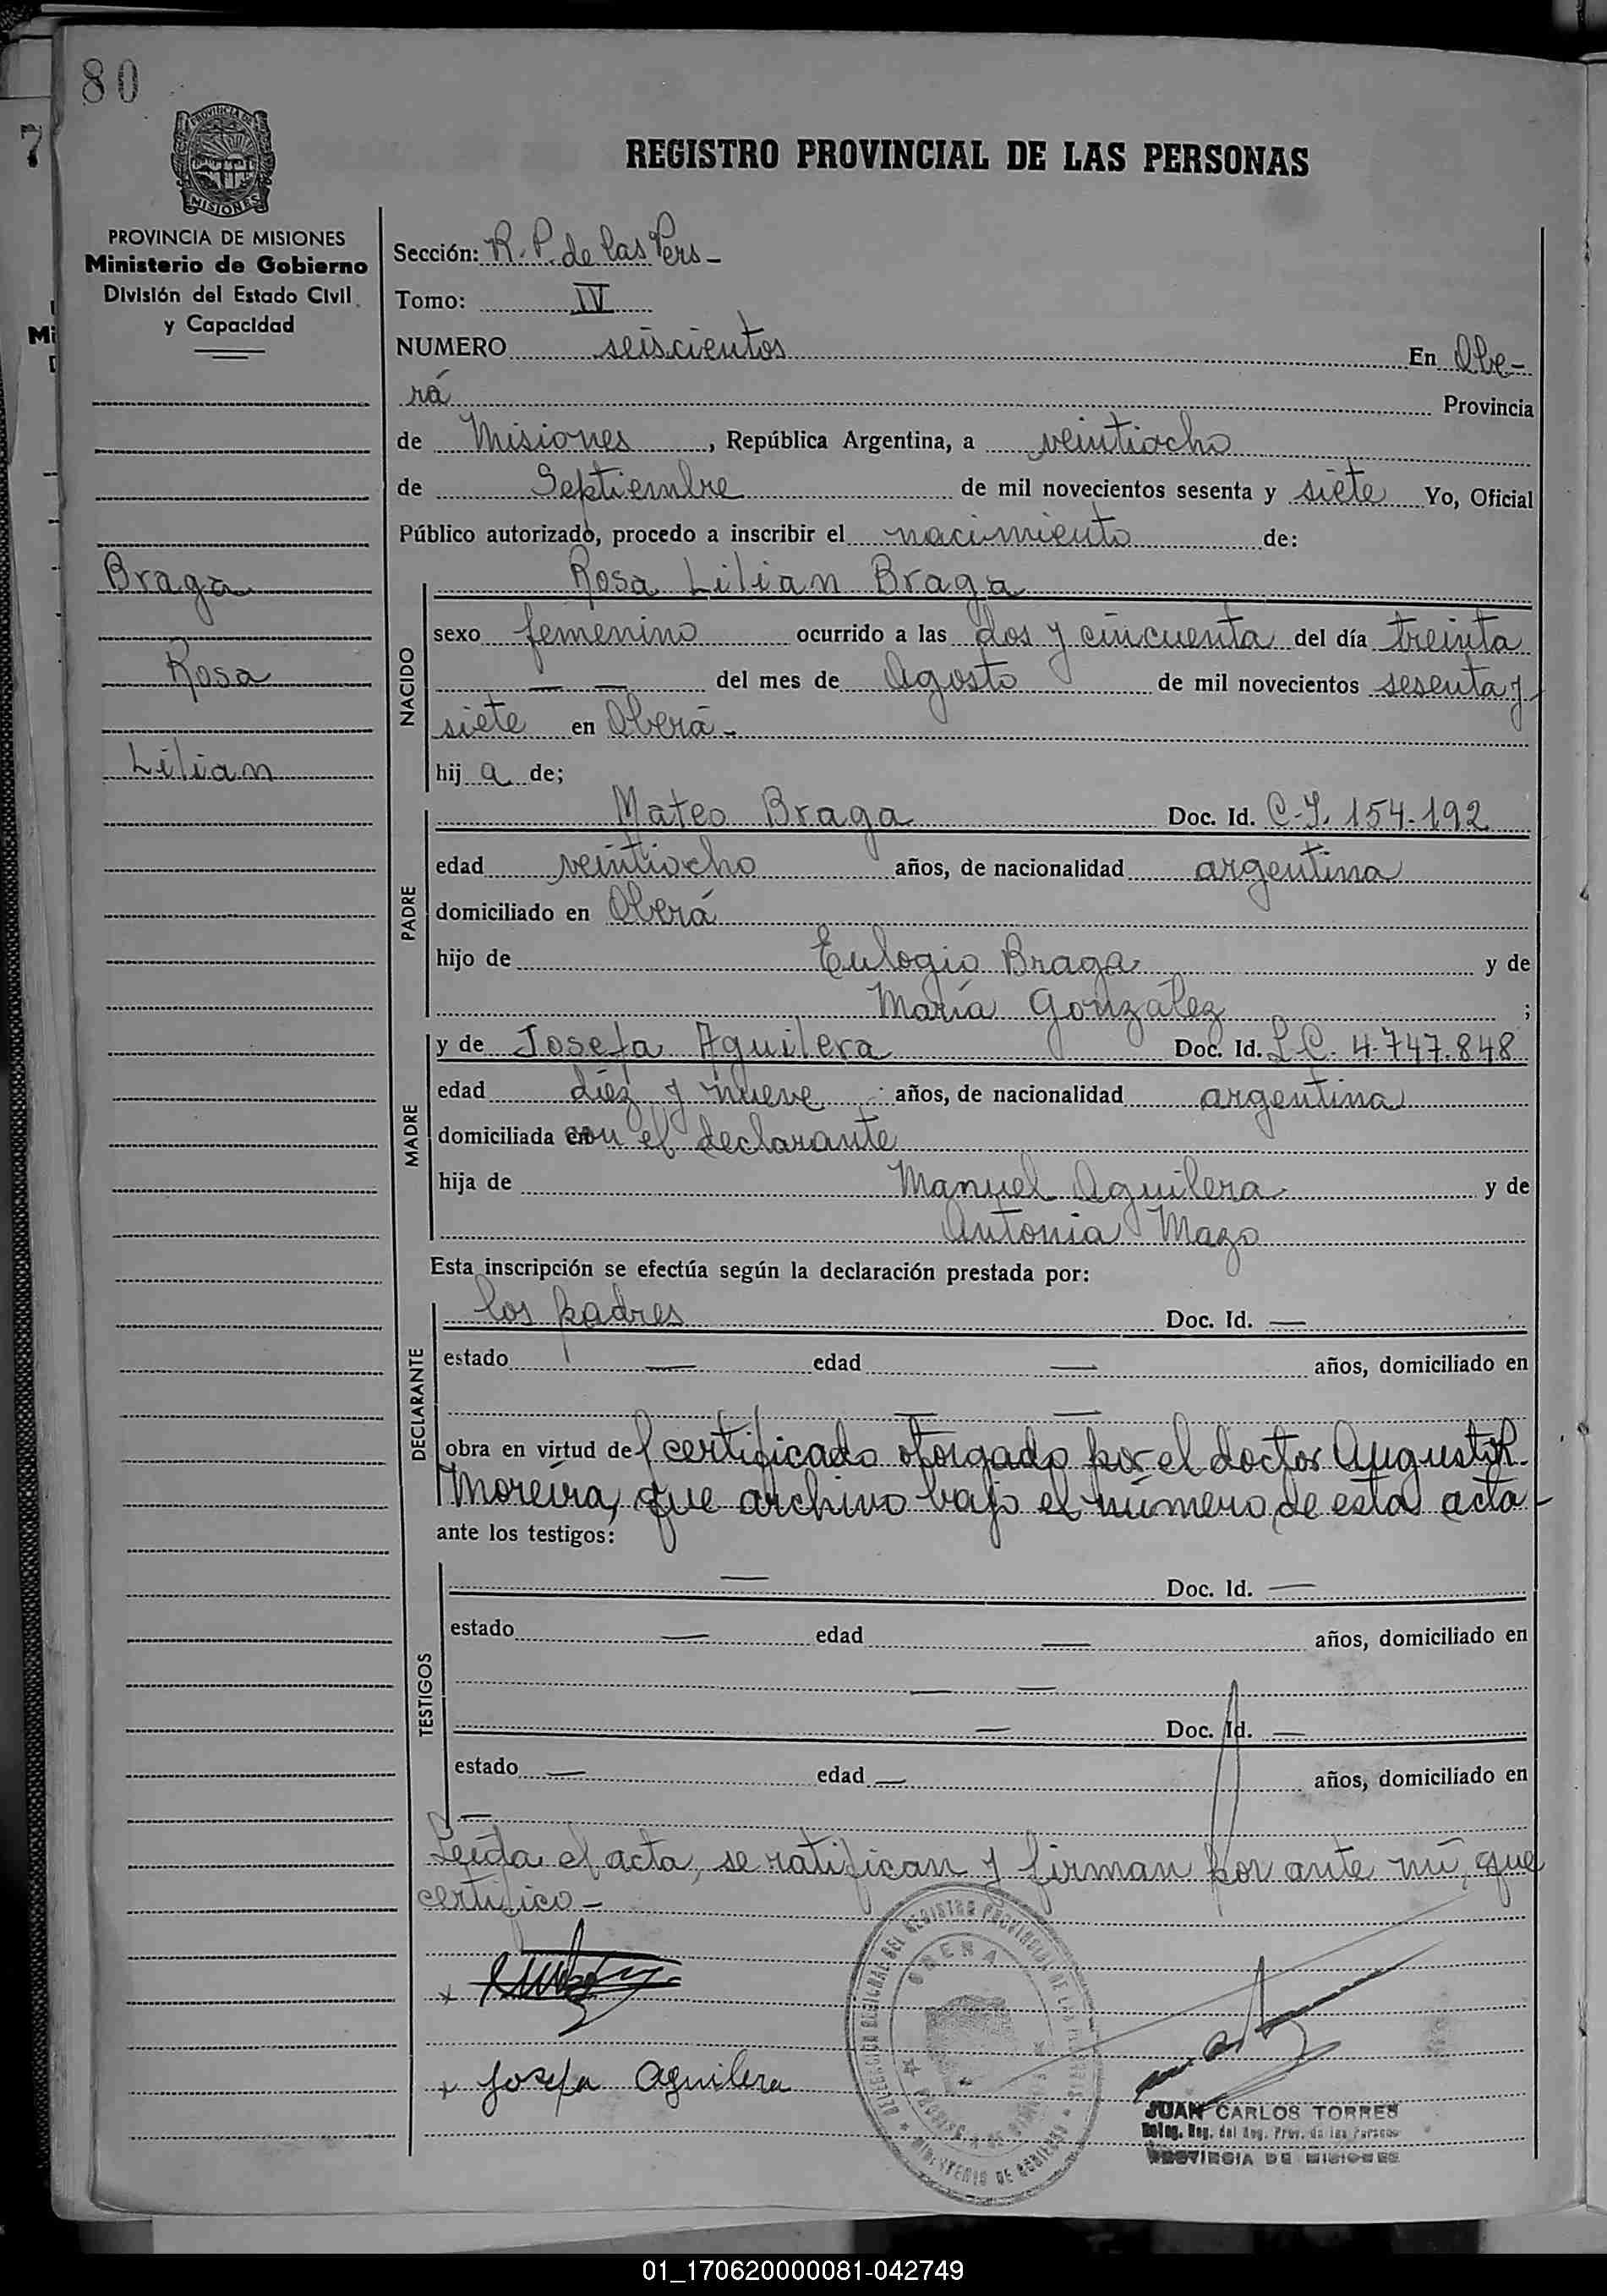 80
7
PROVINCIA DE
MISIONES
REGISTRO PROVINCIAL DE LAS PERSONAS
PROVINCIA DE MISIONES
Ministerio de Gobierno
División del Estado Civil
y Capacidad
Braga
Rosa
Lilian
Sección: R. P. de las Pers -
Tomo: IV
NUMERO seiscientos En Obe-
rá Provincia
de Misiones, República Argentina, a veintiocho
de Septiembre de mil novecientos sesenta y siete Yo, Oficial
Público autorizado, procedo a inscribir el nacimiento de:
NACIDO
Rosa Lilian Braga
sexo femenino ocurrido a las dos y cincuenta del día treinta
— — del mes de Agosto de mil novecientos sesenta y
siete en Oberá -
hij a de;
PADRE
Mateo Braga Doc. Id. C. I. 154-192
edad veintiocho años, de nacionalidad argentina
domiciliado en Oberá
hijo de Eulogio Braga y de
María González ;
MADRE
y de Josefa Aguilera Doc. Id. L.C. 4.747.848
edad diez y nueve años, de nacionalidad argentina
domiciliada con el declarante
hija de Manuel Aguilera y de
Antonia Mazo
Esta inscripción se efectúa según la declaración prestada por:
DECLARANTE
los padres Doc. Id. —
estado — edad — años, domiciliado en
— —
obra en virtud del certificado otorgado por el doctor Augusto R.
Moreira, que archivo bajo el número de esta acta -
ante los testigos:
TESTIGOS
— Doc. Id. —
estado — edad — años, domiciliado en
— —
— Doc. Id. —
estado — edad — años, domiciliado en
—
Leída el acta, se ratifican y firman por ante mí, que
certifico -
x Josefa Aguilera
JUAN CARLOS TORRES
Deleg. Reg. del Reg. Prov. de las Personas
PROVINCIA DE MISIONES
01_170620000081-042749